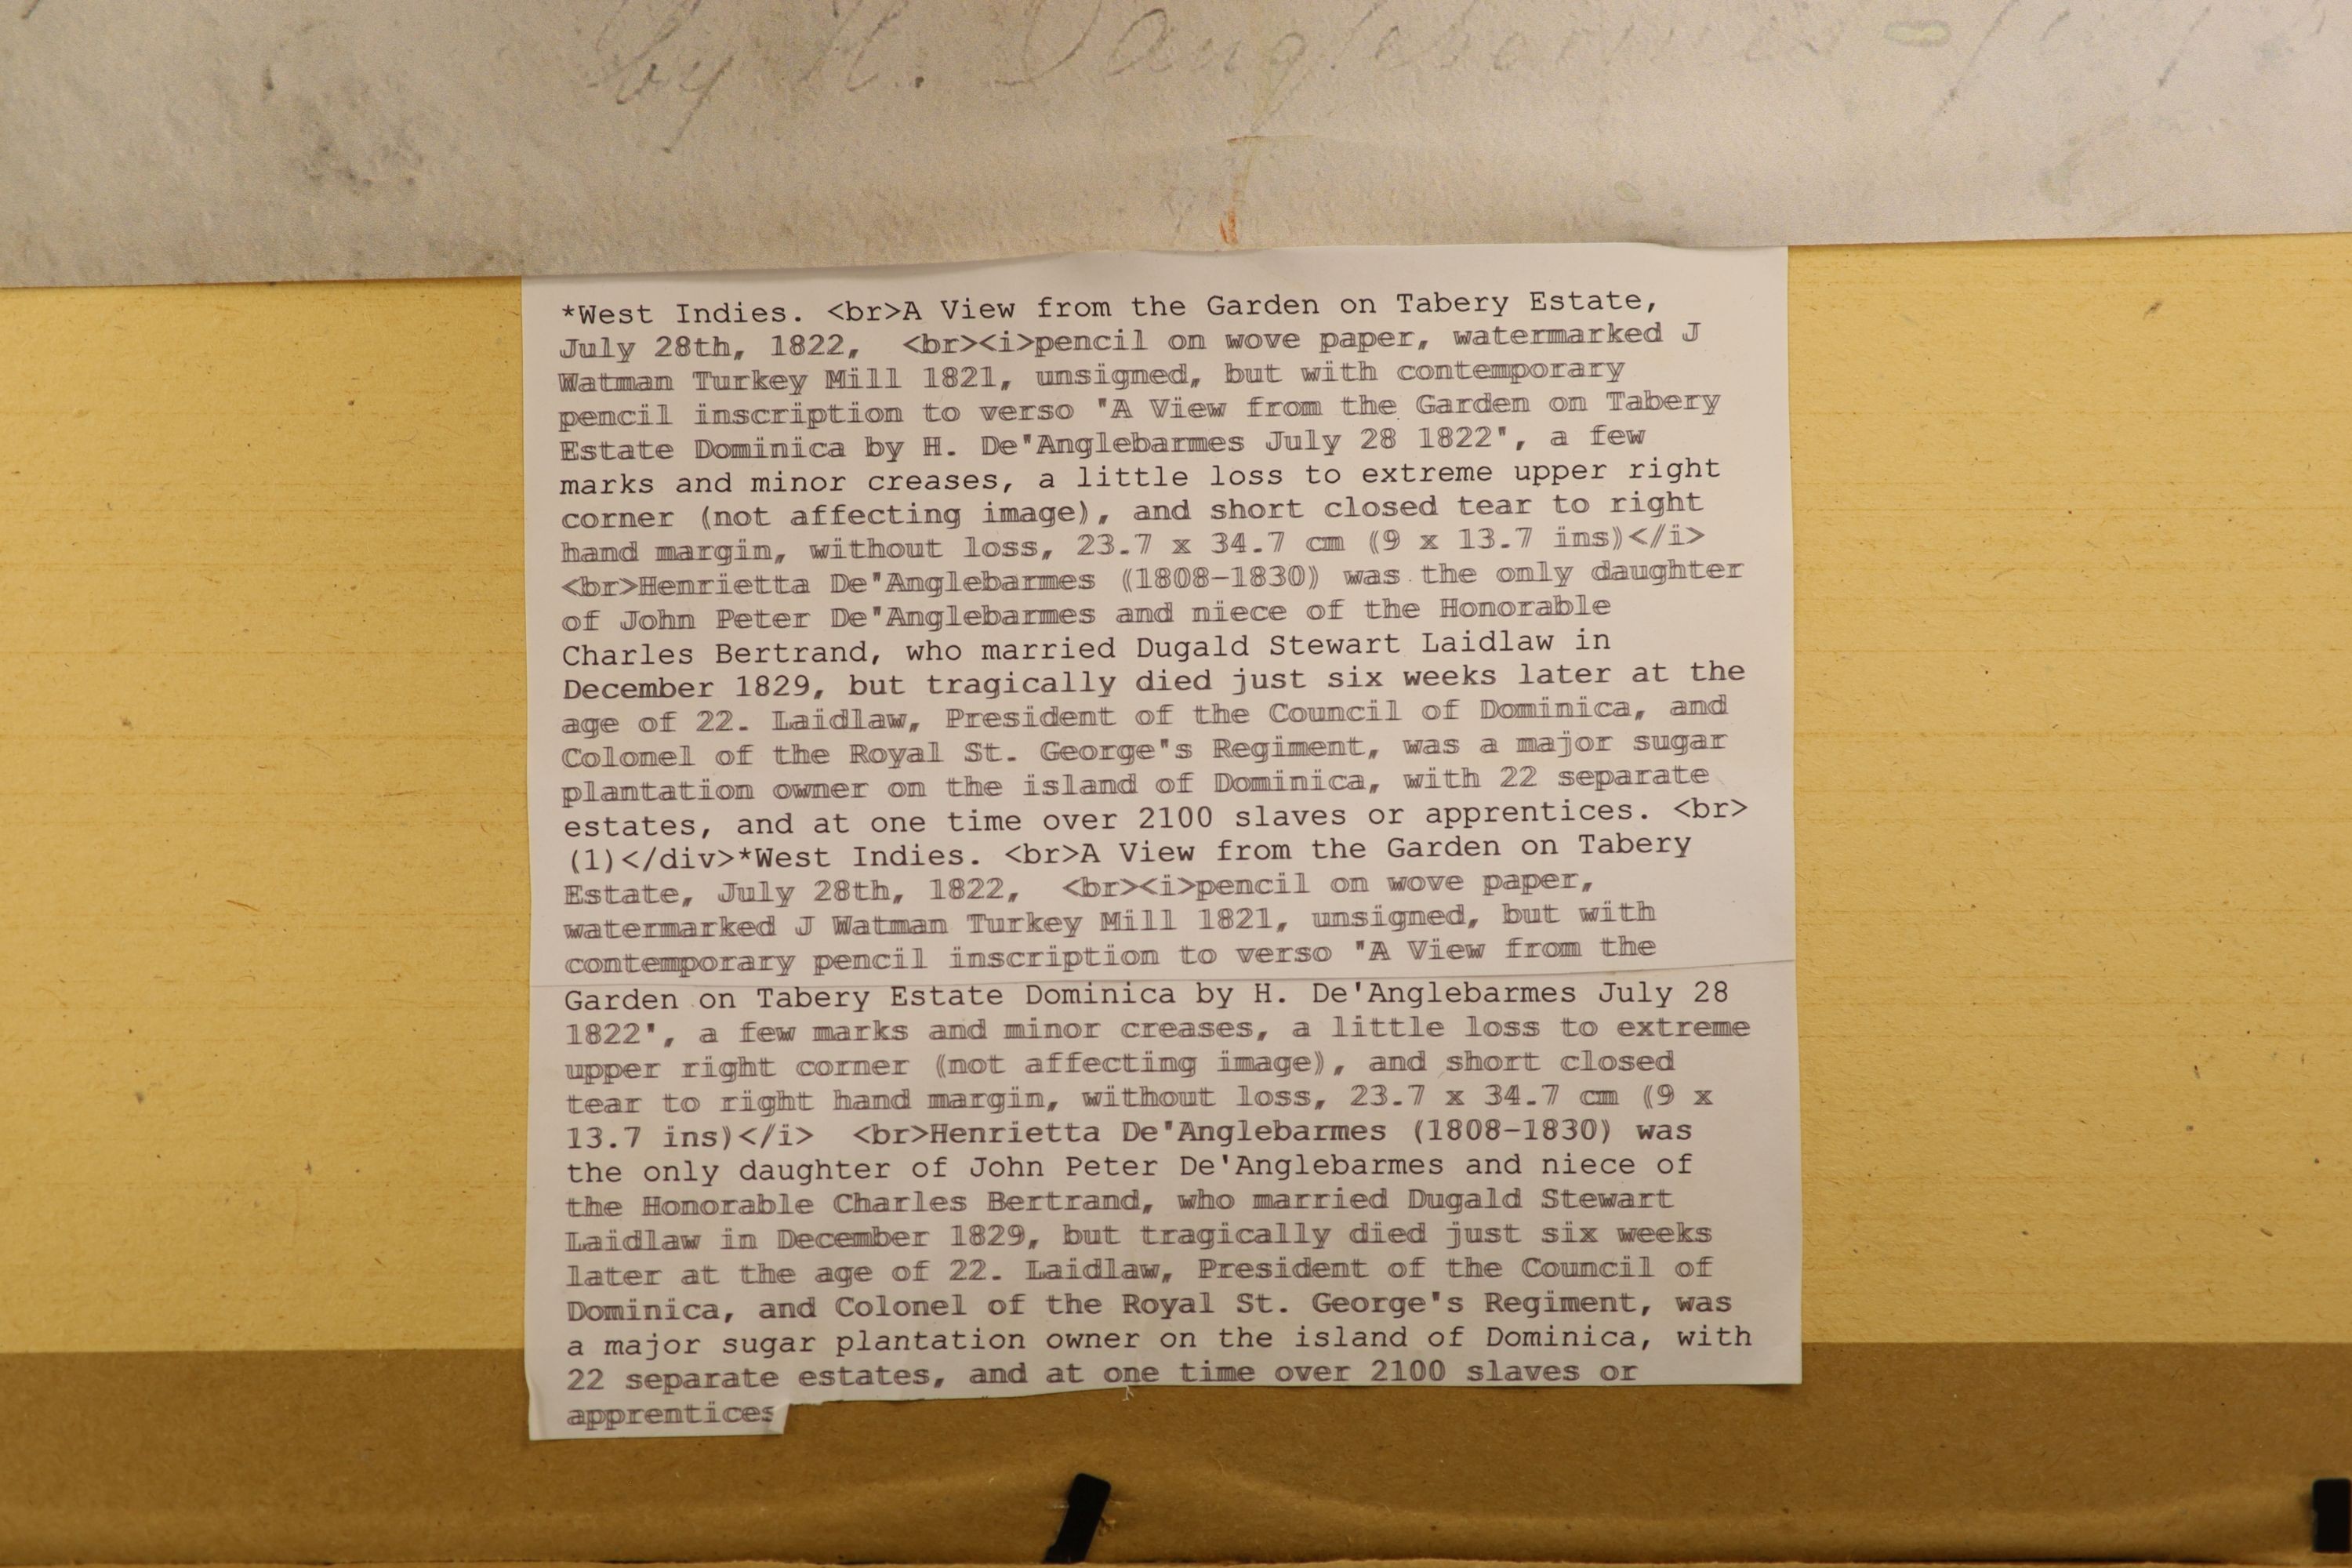 by H. Danglebarmes
*West Indies. <br>A View from the Garden on Tabery Estate,
July 28th, 1822,  <br><i>pencil on wove paper, watermarked J
Watman Turkey Mill 1821, unsigned, but with contemporary
pencil inscription to verso "A View from the Garden on Tabery
Estate Dominica by H. De'Anglebarmes July 28 1822', a few
marks and minor creases, a little loss to extreme upper right
corner (not affecting image), and short closed tear to right
hand margin, without loss, 23.7 x 34.7 cm (9 x 13.7 ins)</i>
<br>Henrietta De'Anglebarmes (1808-1830) was the only daughter
of John Peter De'Anglebarmes and niece of the Honorable
Charles Bertrand, who married Dugald Stewart Laidlaw in
December 1829, but tragically died just six weeks later at the
age of 22. Laidlaw, President of the Council of Dominica, and
Colonel of the Royal St. George's Regiment, was a major sugar
plantation owner on the island of Dominica, with 22 separate
estates, and at one time over 2100 slaves or apprentices. <br>
(1)</div>*West Indies. <br>A View from the Garden on Tabery
Estate, July 28th, 1822,  <br><i>pencil on wove paper,
watermarked J Watman Turkey Mill 1821, unsigned, but with
contemporary pencil inscription to verso "A View from the
Garden on Tabery Estate Dominica by H. De'Anglebarmes July 28
1822', a few marks and minor creases, a little loss to extreme
upper right corner (not affecting image), and short closed
tear to right hand margin, without loss, 23.7 x 34.7 cm (9 x
13.7 ins)</i>  <br>Henrietta De'Anglebarmes (1808-1830) was
the only daughter of John Peter De'Anglebarmes and niece of
the Honorable Charles Bertrand, who married Dugald Stewart
Laidlaw in December 1829, but tragically died just six weeks
later at the age of 22. Laidlaw, President of the Council of
Dominica, and Colonel of the Royal St. George's Regiment, was
a major sugar plantation owner on the island of Dominica, with
22 separate estates, and at one time over 2100 slaves or
apprentices